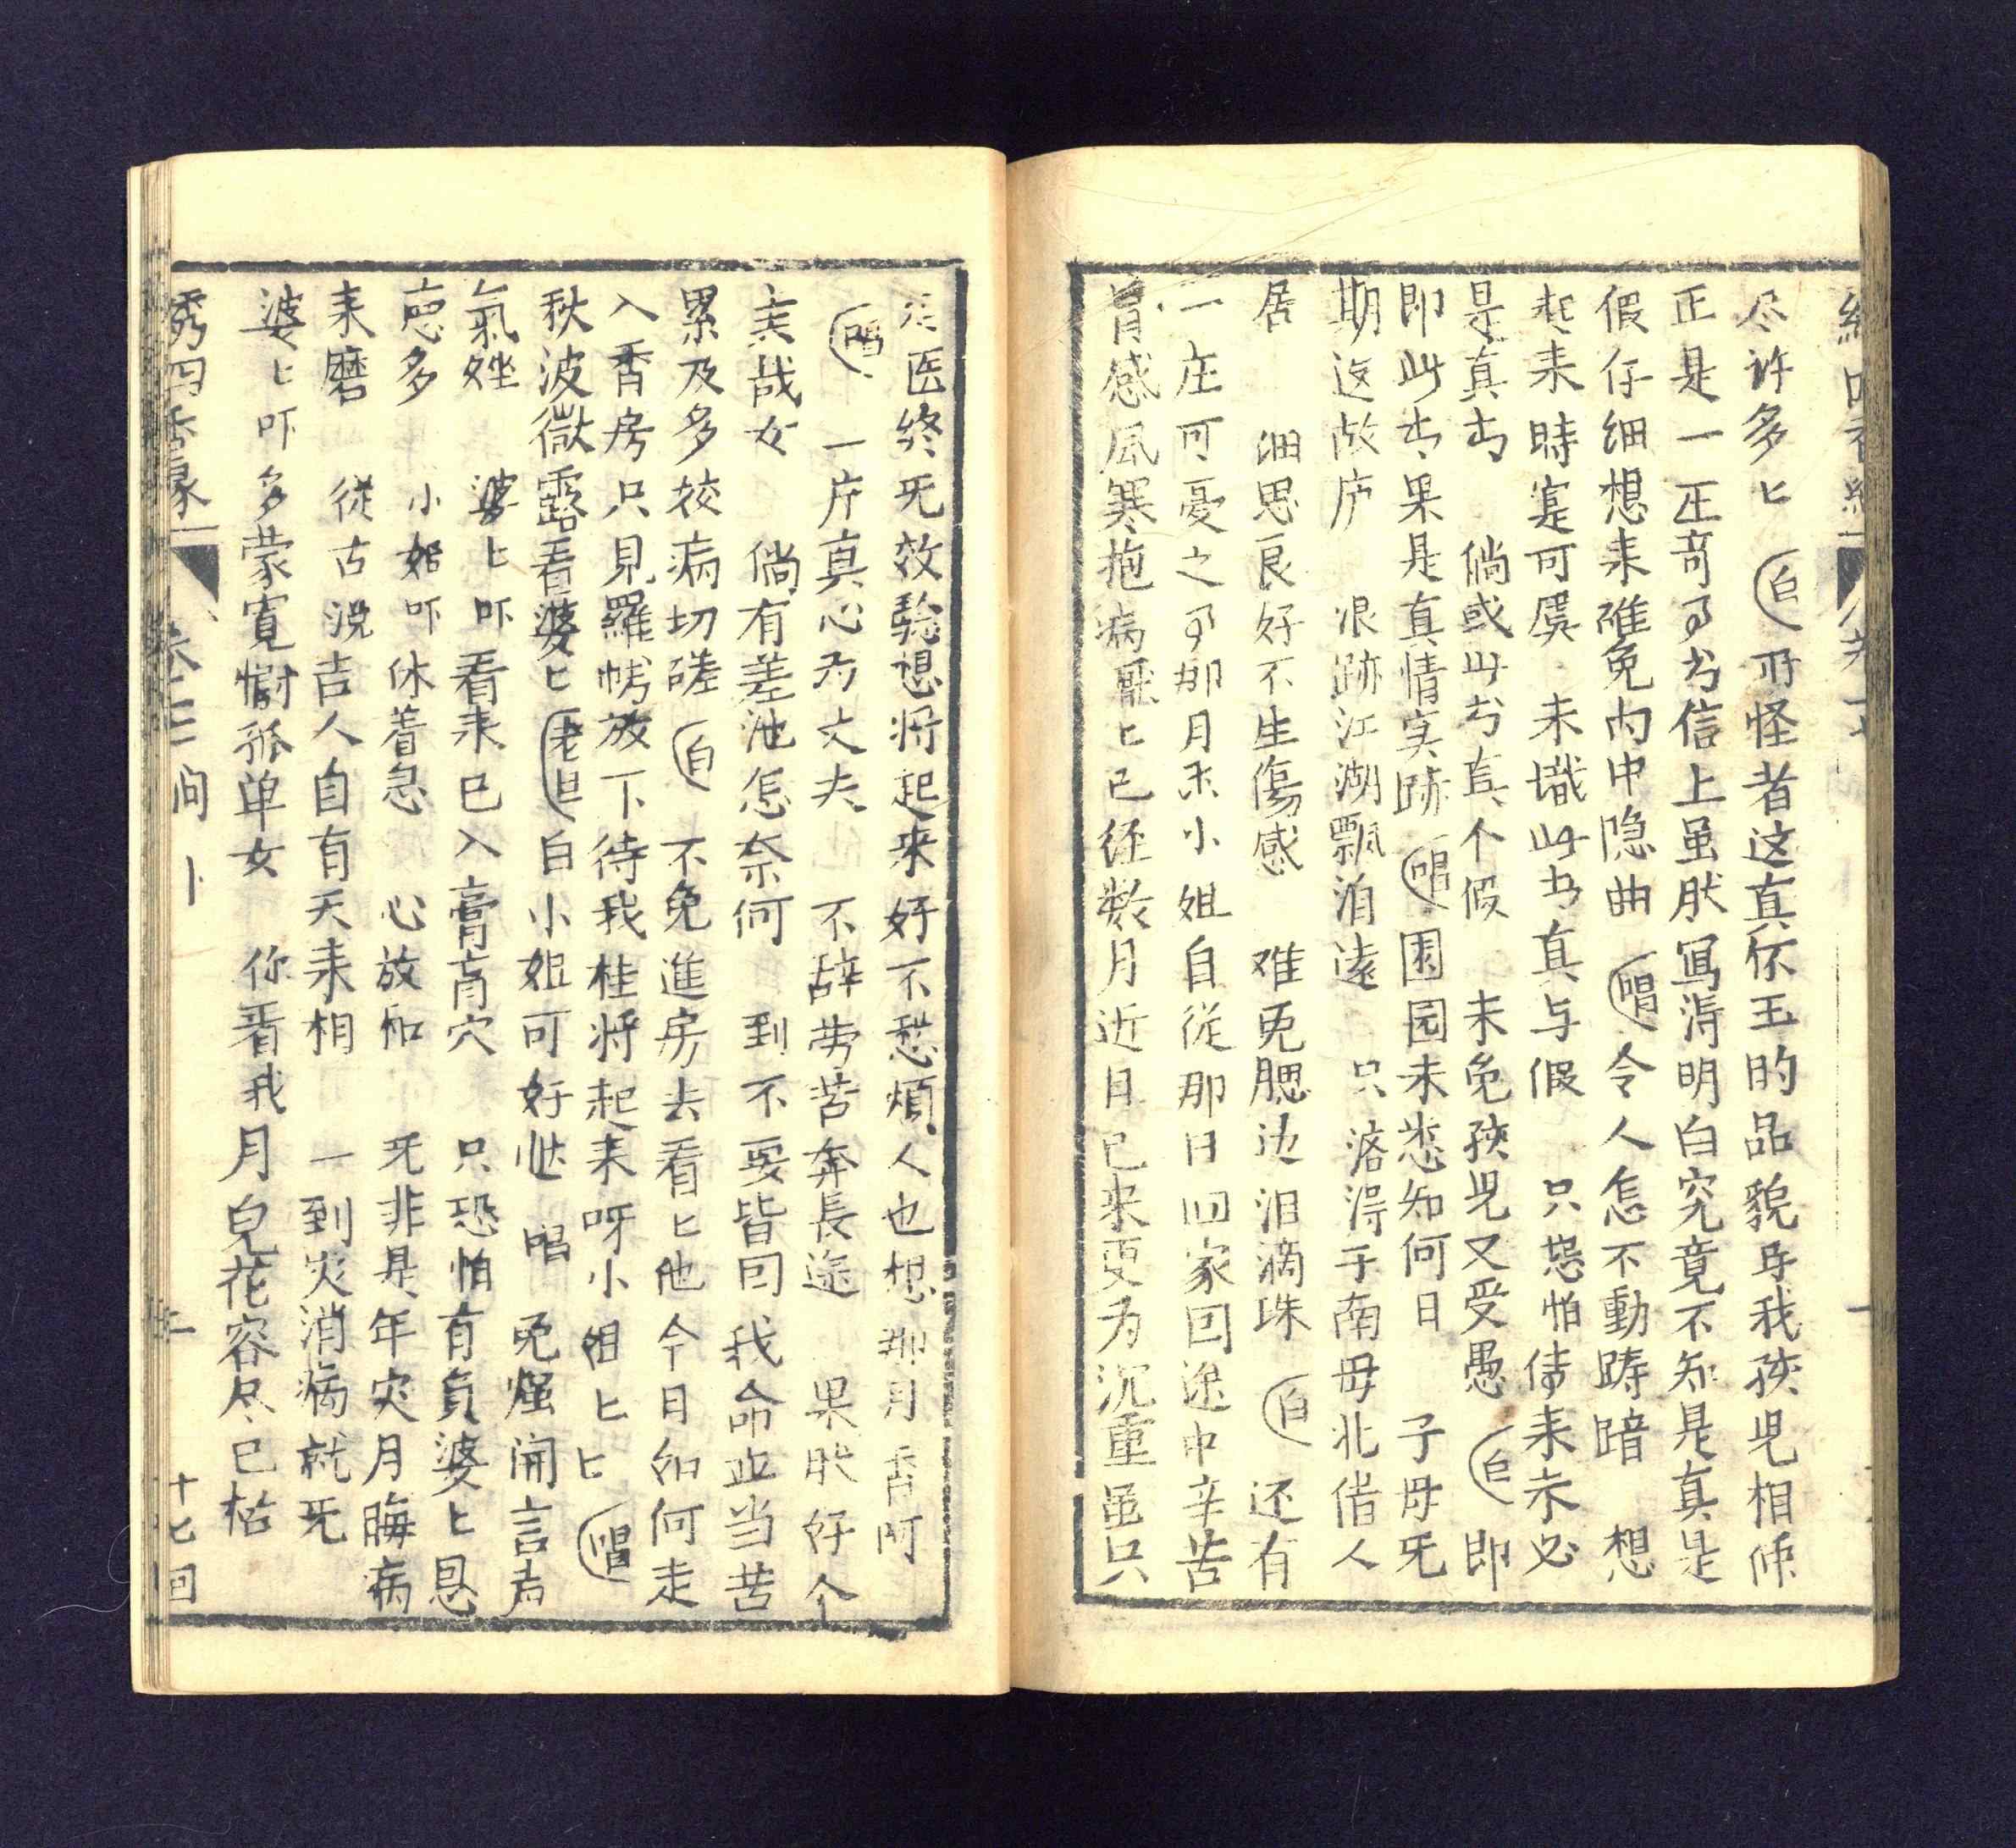 尽许多匕 白 所怪者这真怀玉的品貌与我孩児相
正是一正奇事书信上虽肰冩淂明白究竟不知是真是
假仔细想耒难免内中隐曲 唱 令人怎不動踌蹰 想
起耒時寔可虞 未識此书真与假 只恐怕倩耒未必
是真书 倘或此书真个假 未免孩児又受愚 白 即
即此书果是真情実跡 唱 困园未悉知何日 子母旡
期返故庐 浪跡江湖飄泊遠 只落淂子南母北偕人
居 细思良好不生傷感 难免腮边泪滴珠 白 还有
一庄可憂之事那月香小姐自從那日回家回途中辛苦
冒感風寒抱病匕已径数月近日已来更为沉重虽只
医终旡效騐想将起来好不愁煩人也想那月香阿
唱 一片真心为丈夫 不辞劳苦奔長途 果肰好个
美哉女 倘有差池怎奈何 到不要皆因我命 当苦
累及多姣病切磋 白 不免進房去看匕他今日如何走
入香房只見羅帏放下待我桂将起耒呀小姐匕匕 唱
秋波微露看婆匕 老旦 白小姐可好些 唱 免强開言声
氣 婆匕吓看耒巳入膏肓穴 只恐怕有負婆匕恩
惠多 小姐吓休着急 心放和 旡非是年灾月晦病
耒磨 従古说吉人自有天耒相 一到灾消病就旡
婆匕吓多蒙寬慰孤单女 你看我月皃花容尽已枯
秀四香缘 卷三 问卜 十七回